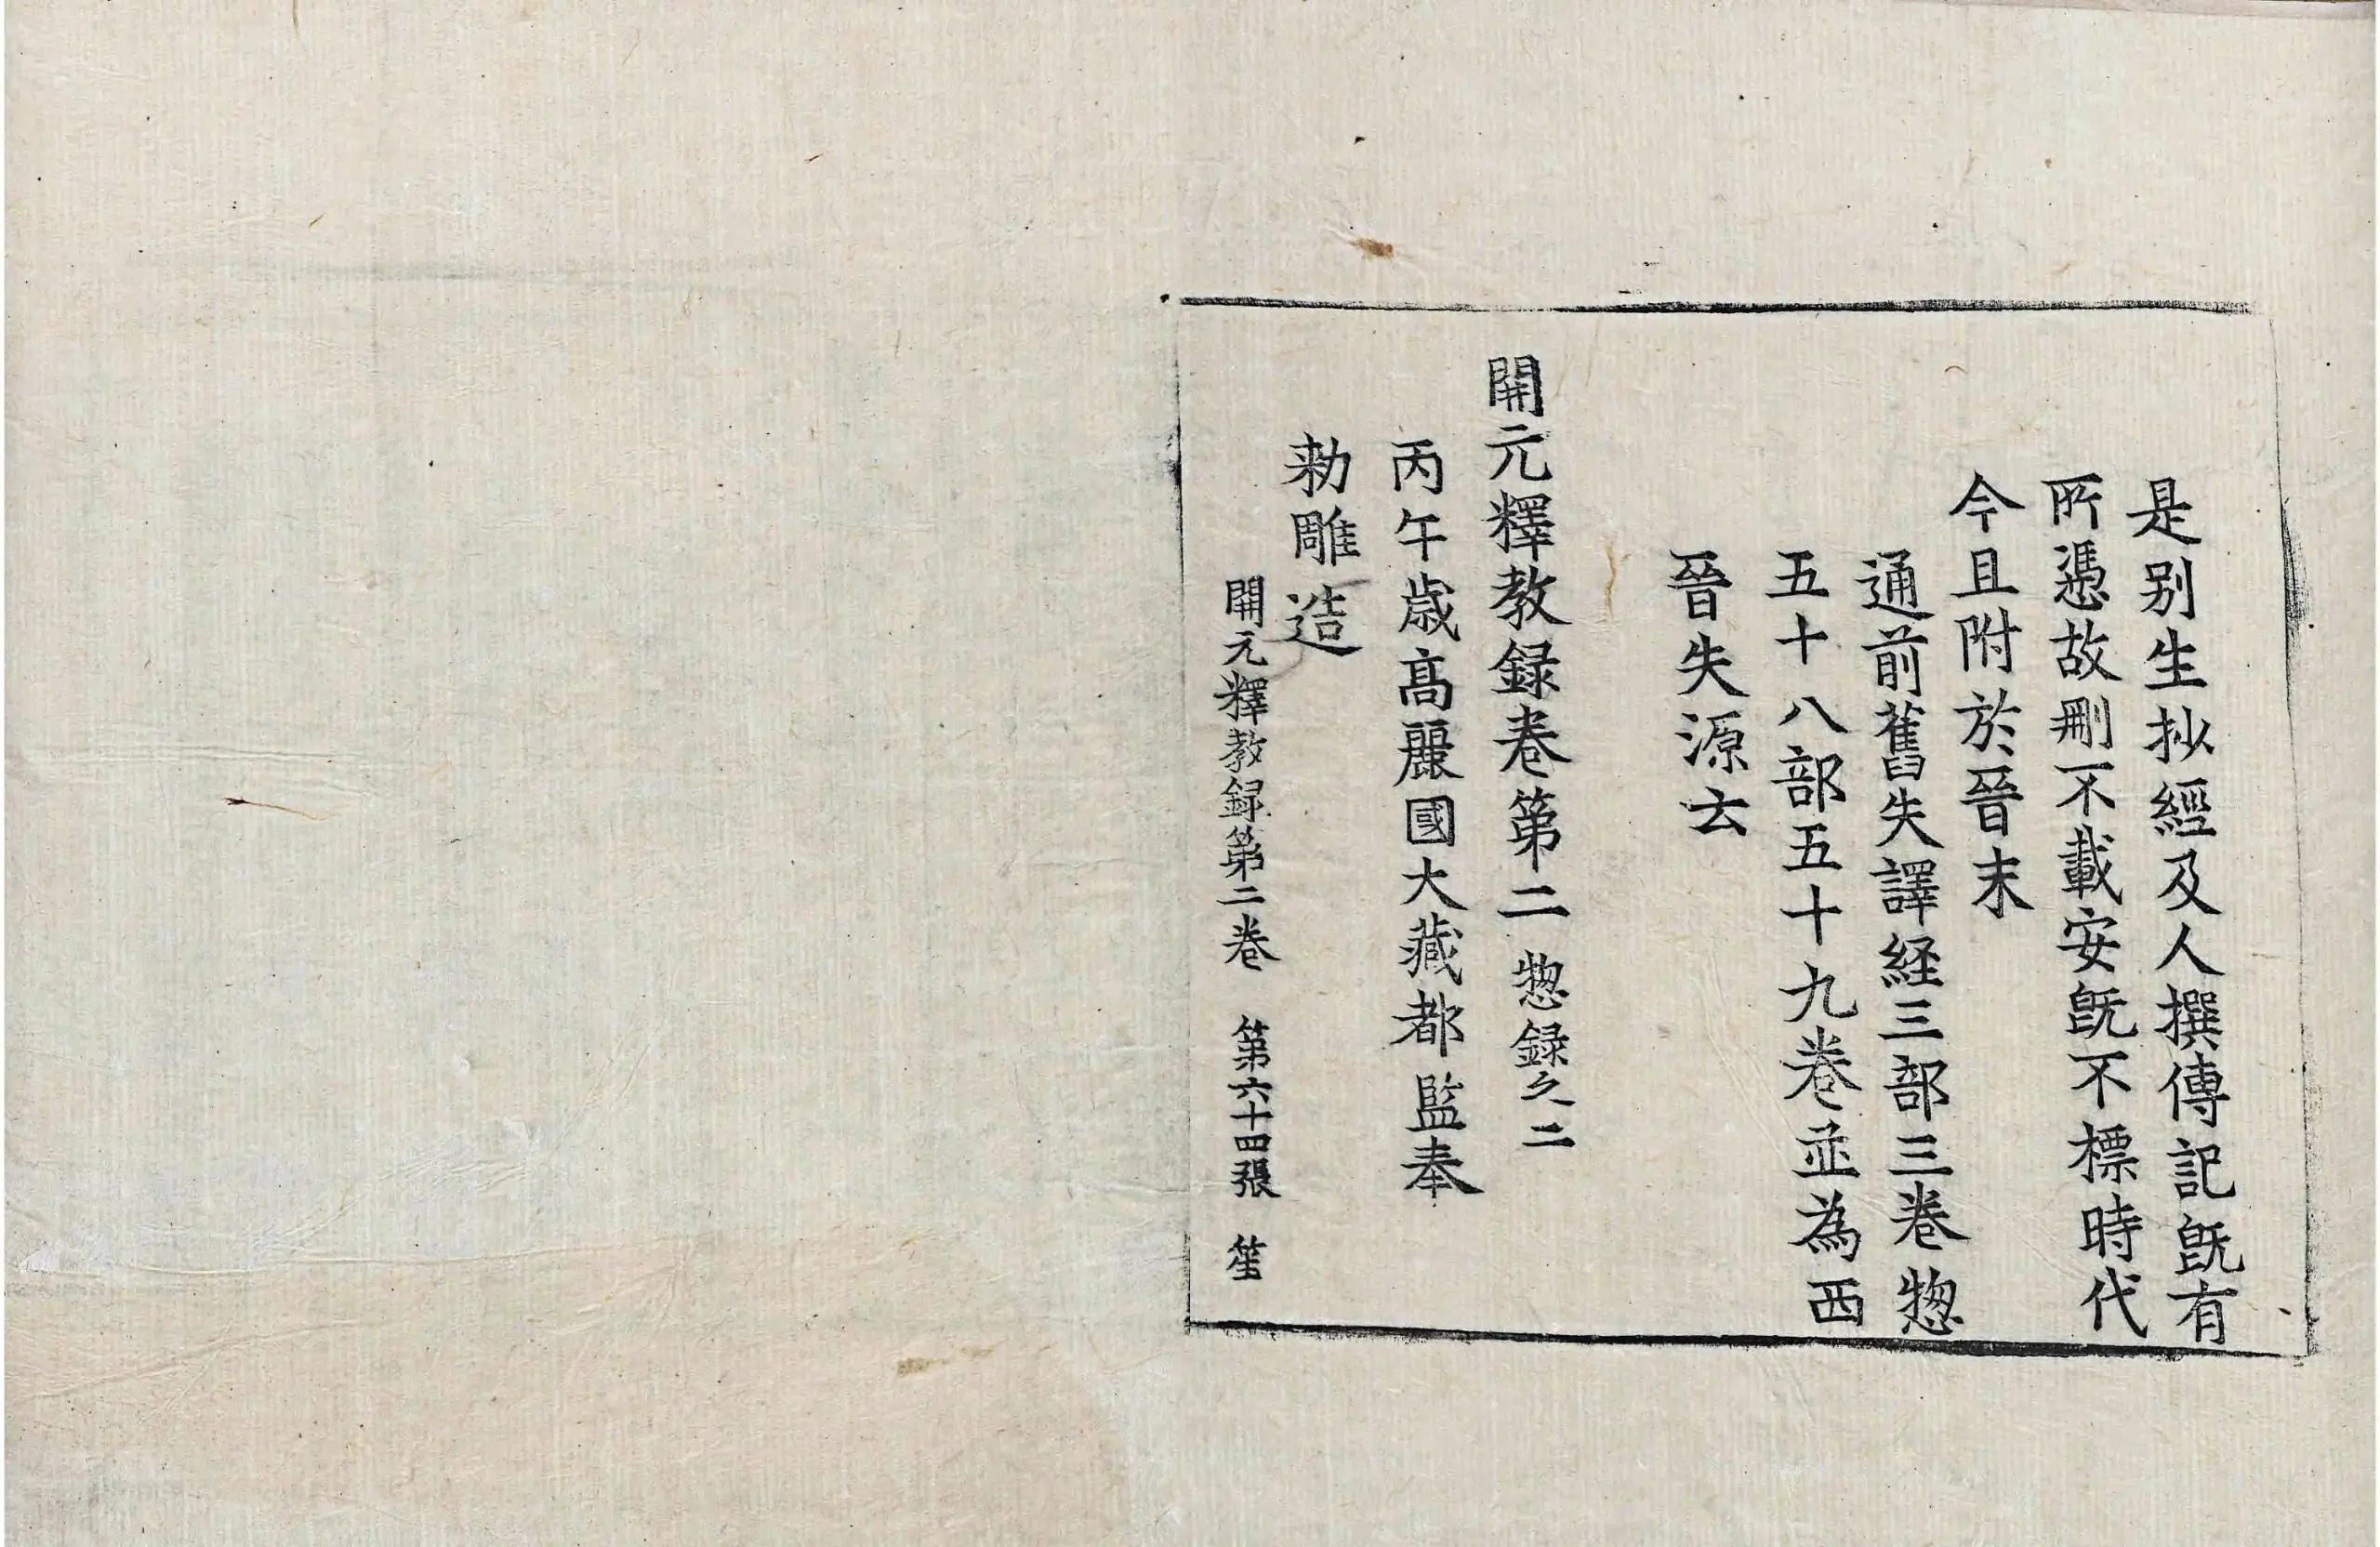 是别生抄經及人撰傳記旣有
所憑故刪不載安旣不標時代
今且附於晉末
通前舊失譯経三部三卷惣
五十八部五十九卷並為西
晉失源云
開元釋教録卷第二 惣録之二
丙午歳高麗國大藏都監奉
勅雕造
開元釋教録第二卷 第六十四張 笙